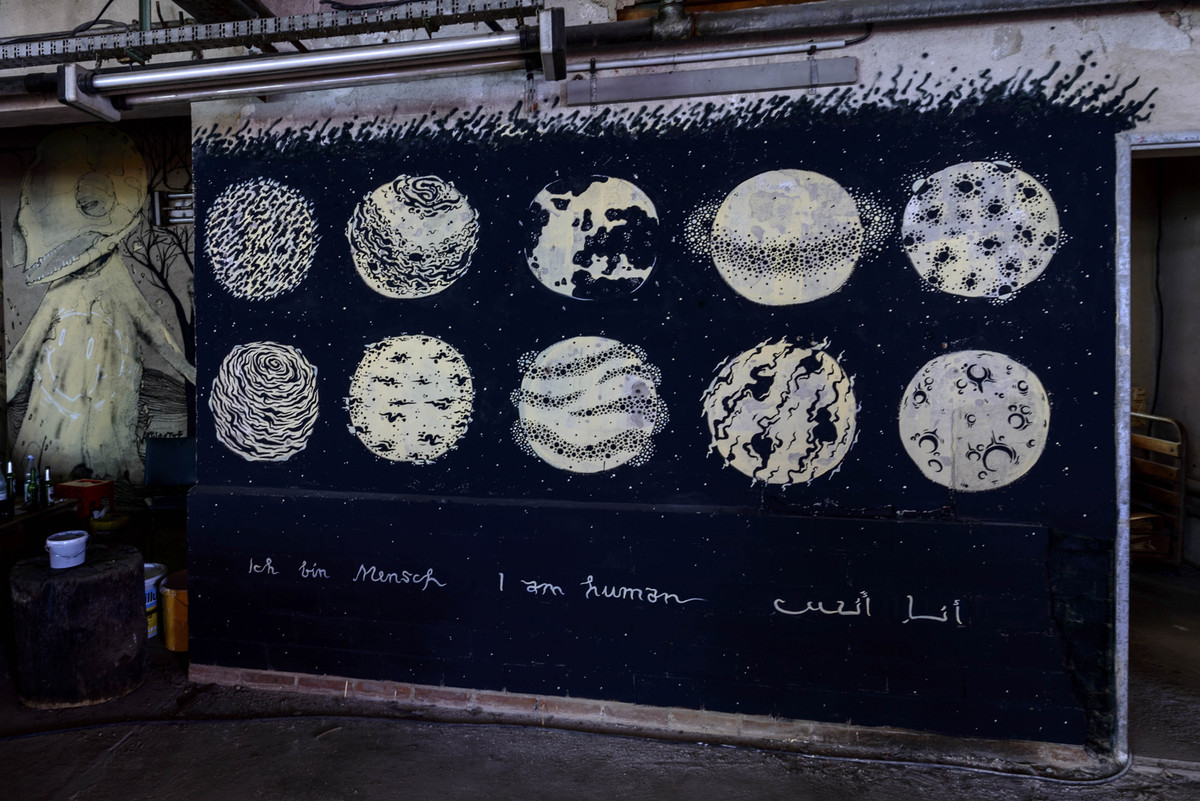 Ich bin Mensch I am human أنا أنس